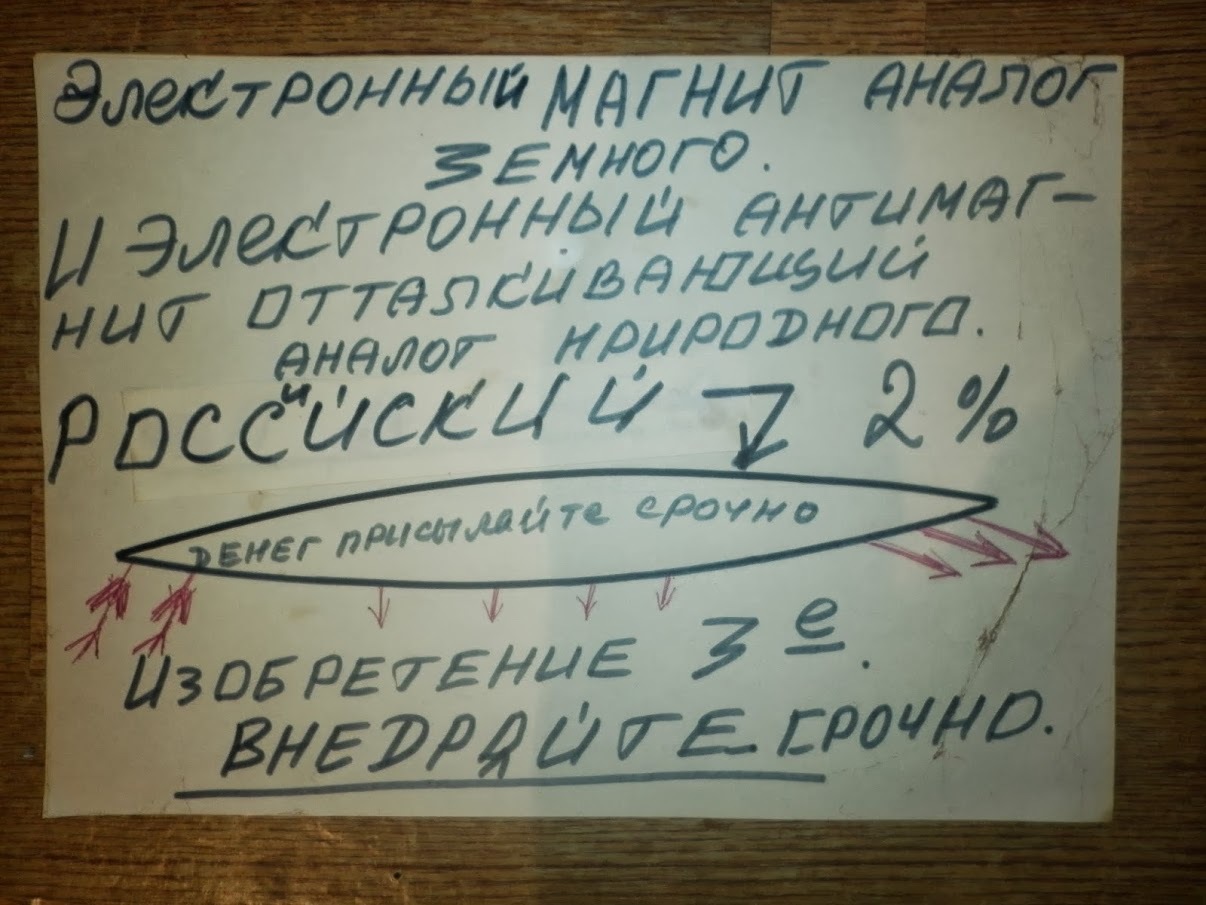 Электронный МАГНИТ АНАЛОГ
ЗЕМНОГО.
И ЭЛЕКТРОННЫЙ АНТИМАГ-
НИТ ОТТАЛКИВАЮЩИЙ
АНАЛОГ ПРИРОДНОГО.
РОССИЙСКИЙ 2%
ДЕНЕГ ПРИСЫЛАЙТЕ СРОЧНО
ИЗОБРЕТЕНИЕ 3е.
ВНЕДРЯЙТЕ СРОЧНО.